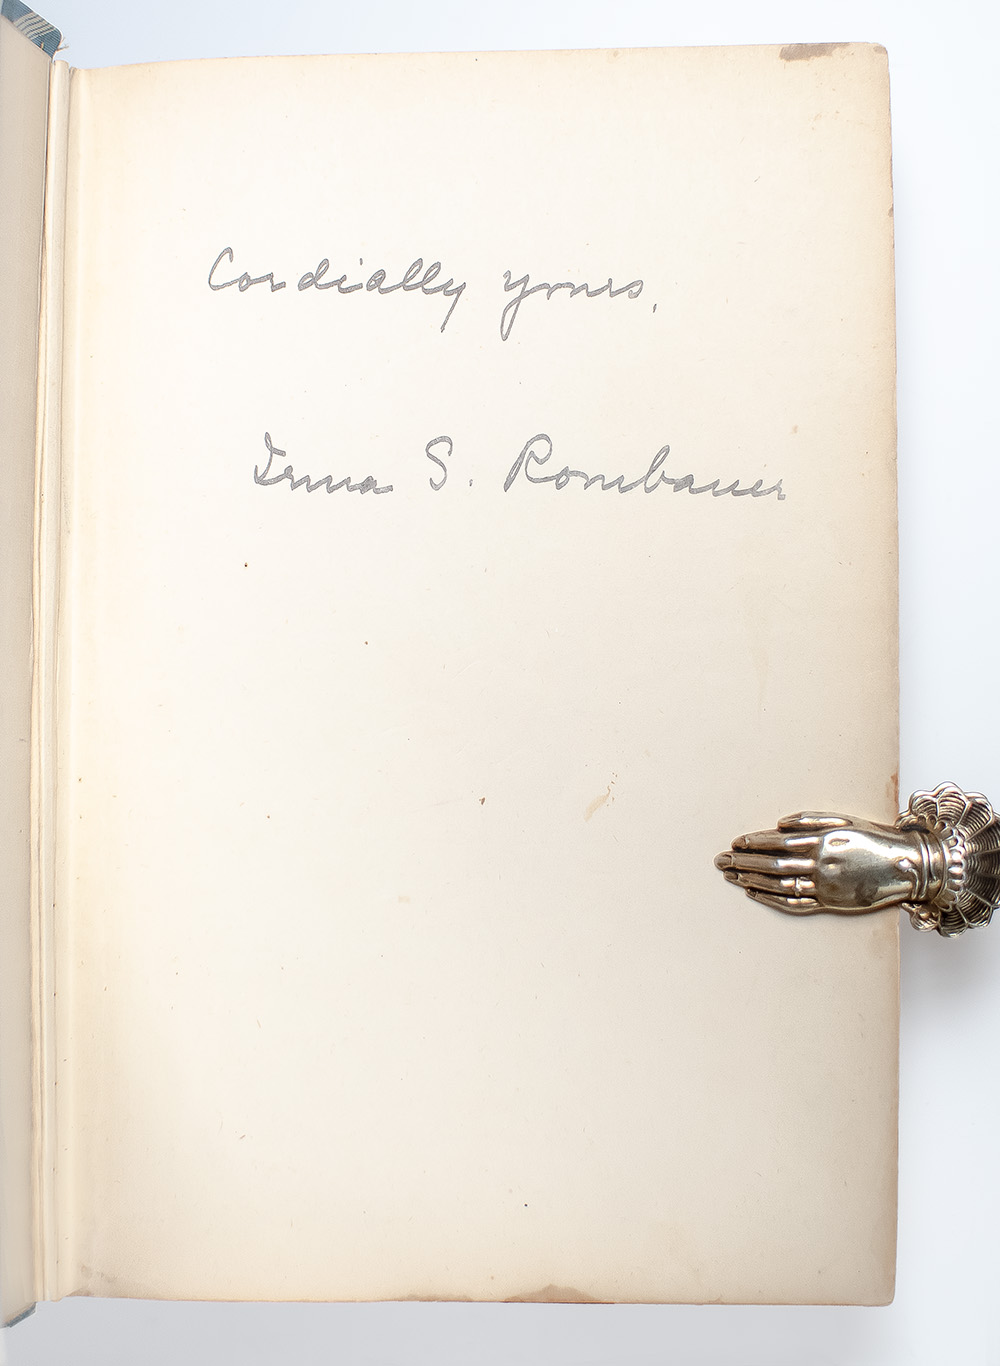 Cordially yours,
Irma S. Rombauer